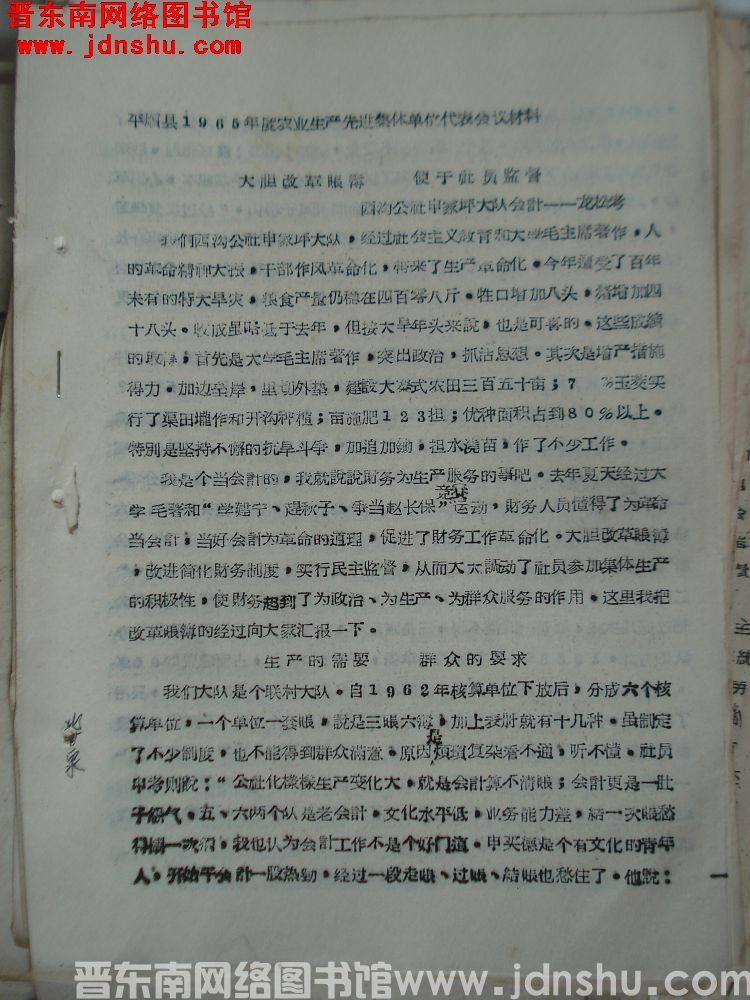 晋东南网络图书馆
www.jdnshu.com
平顺县1965年度农业生产先进集体单位代表会议材料
大胆改革賬簿　便于社员监督
西沟公社申家坪大队会計——龙松考
我们西沟公社申家坪大队，经过社会主义教育和大学毛主席著作，人
的革命精神大振，干部作风革命化，带来了生产革命化。今年遭受了百年
未有的特大旱灾，粮食产量仍稳在四百零八斤。牲口增加八头，猪增加四
十八头。收成虽略低于去年，但按大旱年头来説，也是可喜的。这些成績
的取得，首先是大学毛主席著作，突出政治，抓活思想。其次是增产措施
得力。加边垒岸，里切外垫，建設大寨式农田三百五十亩；7 %玉茭实
行了渠田壠作和开沟种植；亩施肥123担；优种面积占到80%以上。
特别是坚持不懈的抗旱斗争，加追加鋤，担水澆苗，作了不少工作。
我是个当会計的，我就説説財务为生产服务的事吧。去年夏天经过大
学毛著和“学建宁、赶秋子、争当赵长保”竞赛运动，財务人员懂得了为革命
当会計，当好会計为革命的道理，促进了財务工作革命化。大胆改革賬簿
，改进簡化財务制度，实行民主监督，从而大大調动了社员参加集体生产
的积极性，使財务起到了为政治、为生产、为群众服务的作用。这里我把
改革賬簿的经过向大家汇报一下。
生产的需要　群众的要求
我们大队是个联村大队。自1962年核算单位下放后，分成六个核
算单位，一个单位一套賬，說是三賬六簿，加上表册就有十几种。虽制定
了不少制度，也不能得到群众滿意。原因是煩瑣复杂看不通，听不懂。社员
申考则説：“公社化樣樣生产变化大，就是会計算不清賬；会計更是一肚
子怨气。五、六两个队是老会計，文化水平低，业务能力差，結一次賬愁
得 一次病，我也认为会計工作不是个好門道。申买德是个有文化的青年
人，开始干会計一股热勁，经过一段走賬、过賬、結賬也愁住了。他說：
一
晋东南网络图书馆www.jdnshu.com